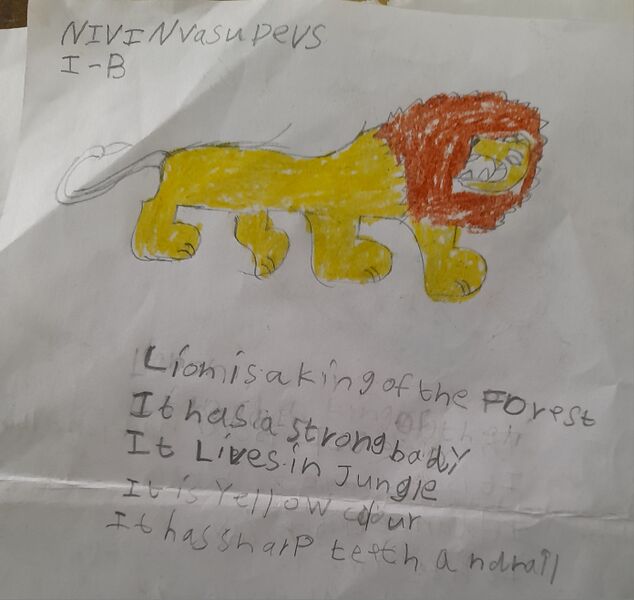 NIVINvasuDevS
I-B
Liomisaking of the Forest
It has a strong bady
It Lives in Jungle
It is Yellow colour
It has sharp teeth andnail